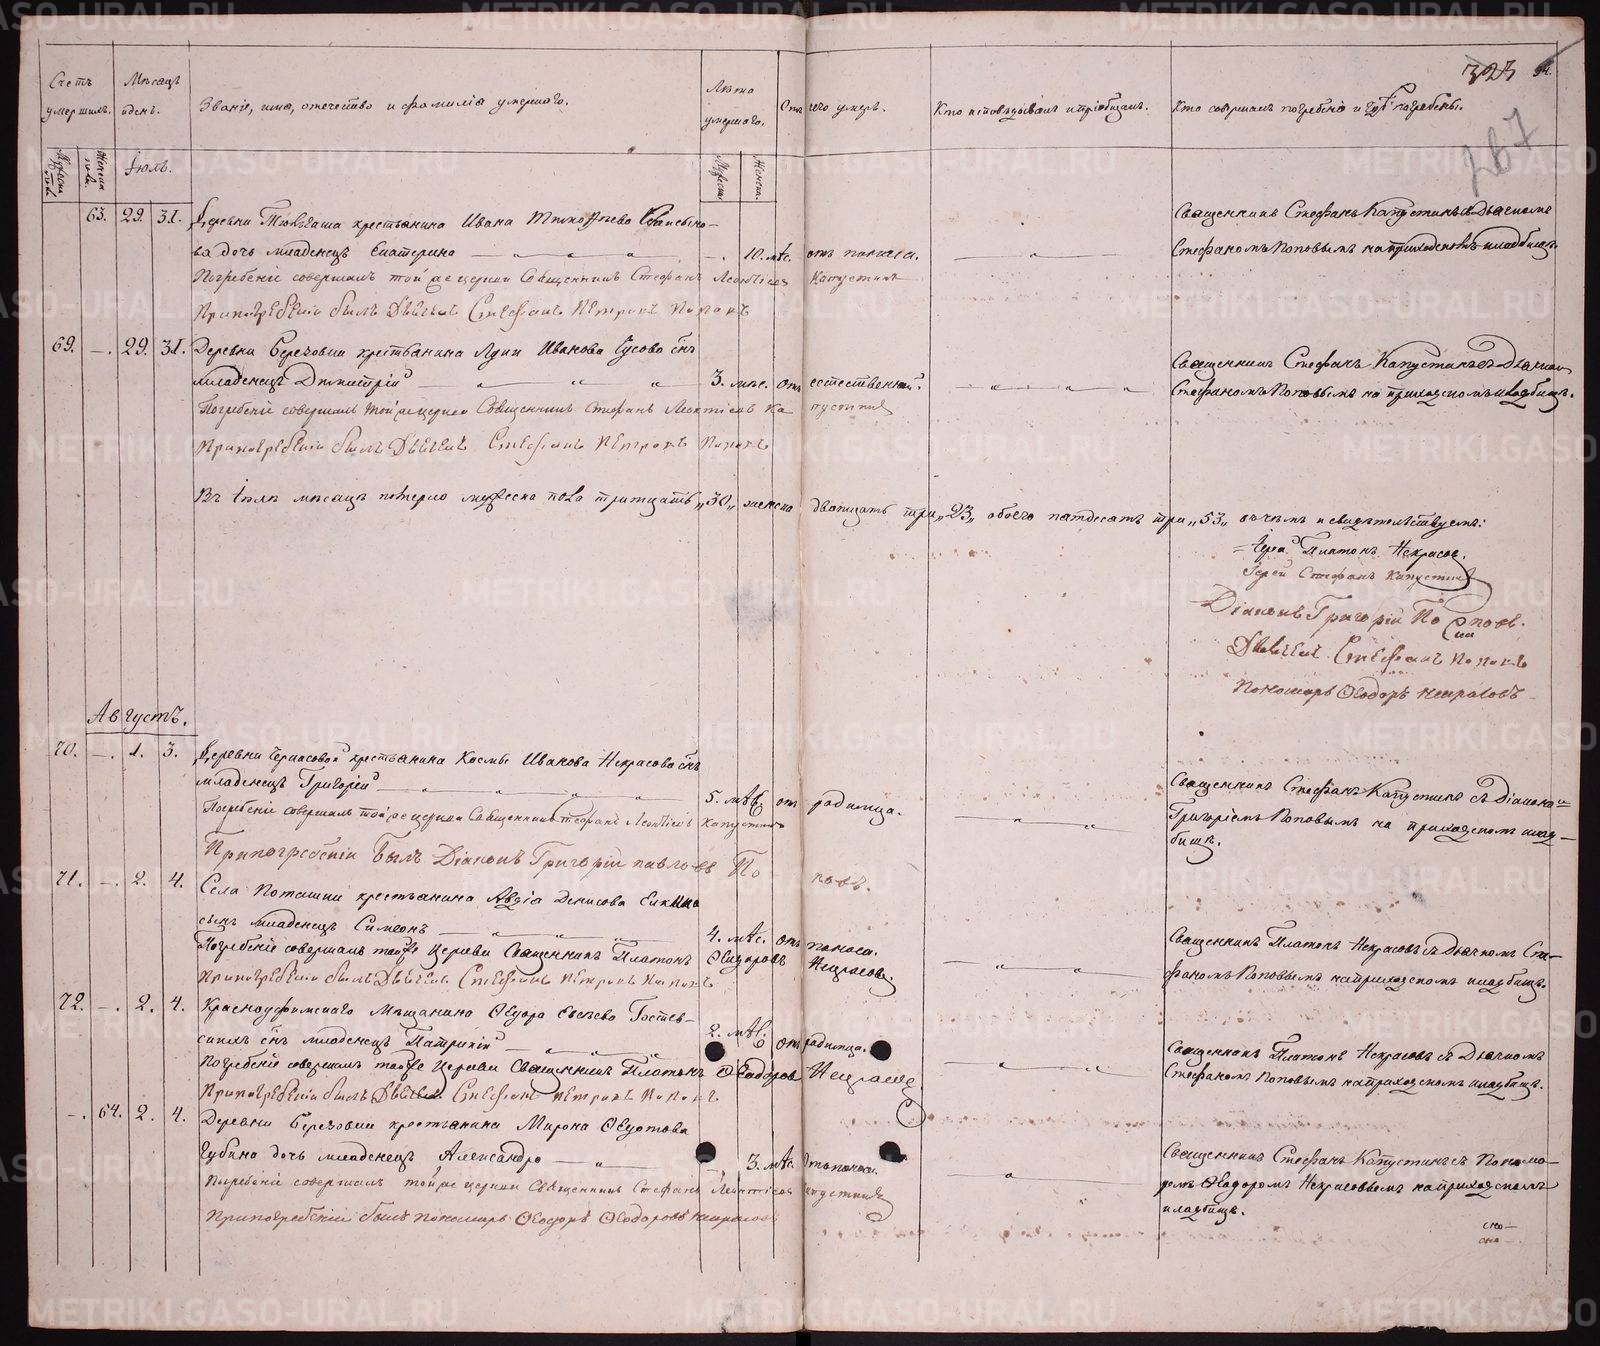 METRIKI.GASO-URAL.RU
Счетъ умершихъ.
Мѣсяцъ и день.
Званіе, имя, отечество и фамилія умершаго.
Лѣта умершаго.
Отъ чего умеръ.
Кто исповѣдывалъ и пріобщалъ.
Кто совершалъ погребеніе и гдѣ погребены.
94.
267
Мужеска пола
Женска пола
Іюль.
Мужеска
Женска
63. 29. 31. Деревни крестьянина Ивана
ва дочь младенецъ Екатерина 10. мѣс. отъ поноса.
Священникъ Стефанъ Капустинъ съ Дьячкомъ
Стефаномъ Поповымъ на приходскомъ кладбищѣ.
Погребеніе совершалъ той же церкви Священникъ Стефанъ Леонтіевъ Капустинъ
При погребеніи былъ Дьячекъ Стефанъ Петровъ Поповъ
69. 29. 31. Деревни Березовки крестьянина Иванова Гусева сынъ
младенецъ Димитрій 3. мѣс. отъ
Священникъ Стефанъ Капустинъ съ Дьячкомъ
Стефаномъ Поповымъ на приходскомъ кладбищѣ.
Погребеніе совершалъ той же церкви Священникъ Стефанъ Леонтіевъ Капустинъ
При погребеніи былъ Дьячекъ Стефанъ Петровъ Поповъ
Въ Іюлѣ мѣсяцѣ померло мужеска пола тритцать „30„ женска двадцать три „23„ обоего пятдесятъ три „53„ въ чемъ и свидѣтельствуемъ:
Іерей Платонъ Некрасовъ.
Іерей Стефанъ Капустинъ
Діаконъ Григорій Поповъ.
Дьячекъ Стефанъ Поповъ
Пономарь Ѳеодоръ Некрасовъ
Августъ.
70. 1. 3. Деревни крестьянина Космы Иванова Некрасова сынъ
младенецъ Григорій 5. мѣс. отъ родимца.
Священникъ Стефанъ Капустинъ съ Діакономъ
Григоріемъ Поповымъ на приходскомъ клад-
бищѣ.
Погребеніе совершалъ той же церкви Священникъ Стефанъ Леонтіевъ Капустинъ
При погребеніи былъ Діаконъ Григорій Павловъ Поповъ.
71. 2. 4. Села Поташки крестьянина Авдія Денисова
сынъ младенецъ Симеонъ 4. мѣс. отъ поноса.
Священникъ Платонъ Некрасовъ съ Дьячкомъ Сте-
фаномъ Поповымъ на приходскомъ кладбищѣ.
Погребеніе совершалъ тойже церкви Священникъ Платонъ Ѳеодоровъ Некрасовъ.
При погребеніи былъ Дьячекъ Стефанъ Петровъ Поповъ
72. 2. 4. Красноуфимскаго Мѣщанина Ѳедора Евсѣева
сынъ младенецъ Патрикій 2. мѣс. отъ родимца.
Священникъ Платонъ Некрасовъ съ Дьячкомъ
Стефаномъ Поповымъ на приходскомъ кладбищѣ.
Погребеніе совершалъ тойже Церкви Священникъ Платонъ Ѳеодоровъ Некрасовъ
При погребеніи былъ Дьячекъ Стефанъ Петровъ Поповъ
64. 2. 4. Деревни Березовки крестьянина Мирона
Губина дочь младенецъ Александра 3. мѣс. отъ поноса.
Священникъ Стефанъ Капустинъ съ Понома-
ремъ Ѳеодоромъ Некрасовымъ на приходскомъ
кладбищѣ.
Погребеніе совершалъ той же церкви Священникъ Стефанъ Леонтіевъ Капустинъ
При погребеніи былъ Пономарь Ѳеодоръ Ѳеодоровъ Некрасовъ